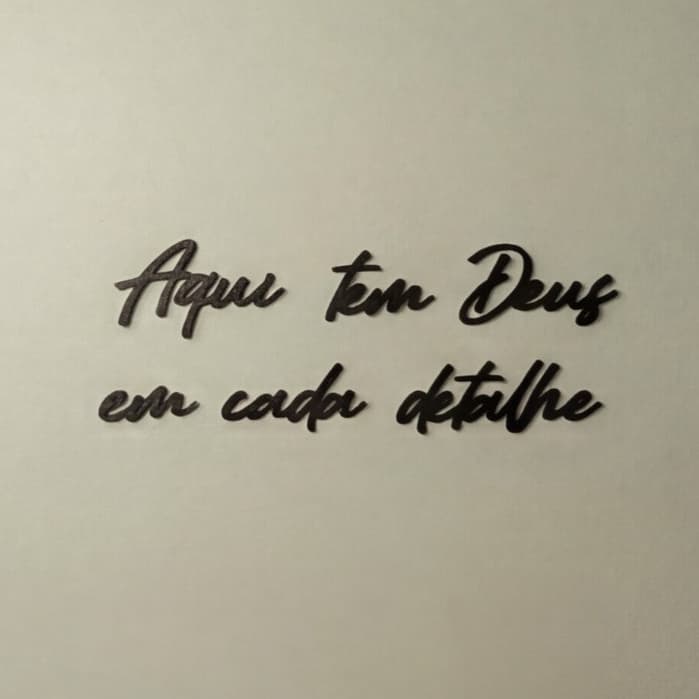 Aqui tem Deus
em cada detalhe